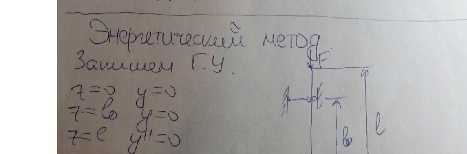 Энергетический метод
Запишем Г.У.
F
z=0 y=0
z=b y=0
z=l y''=0
b
l